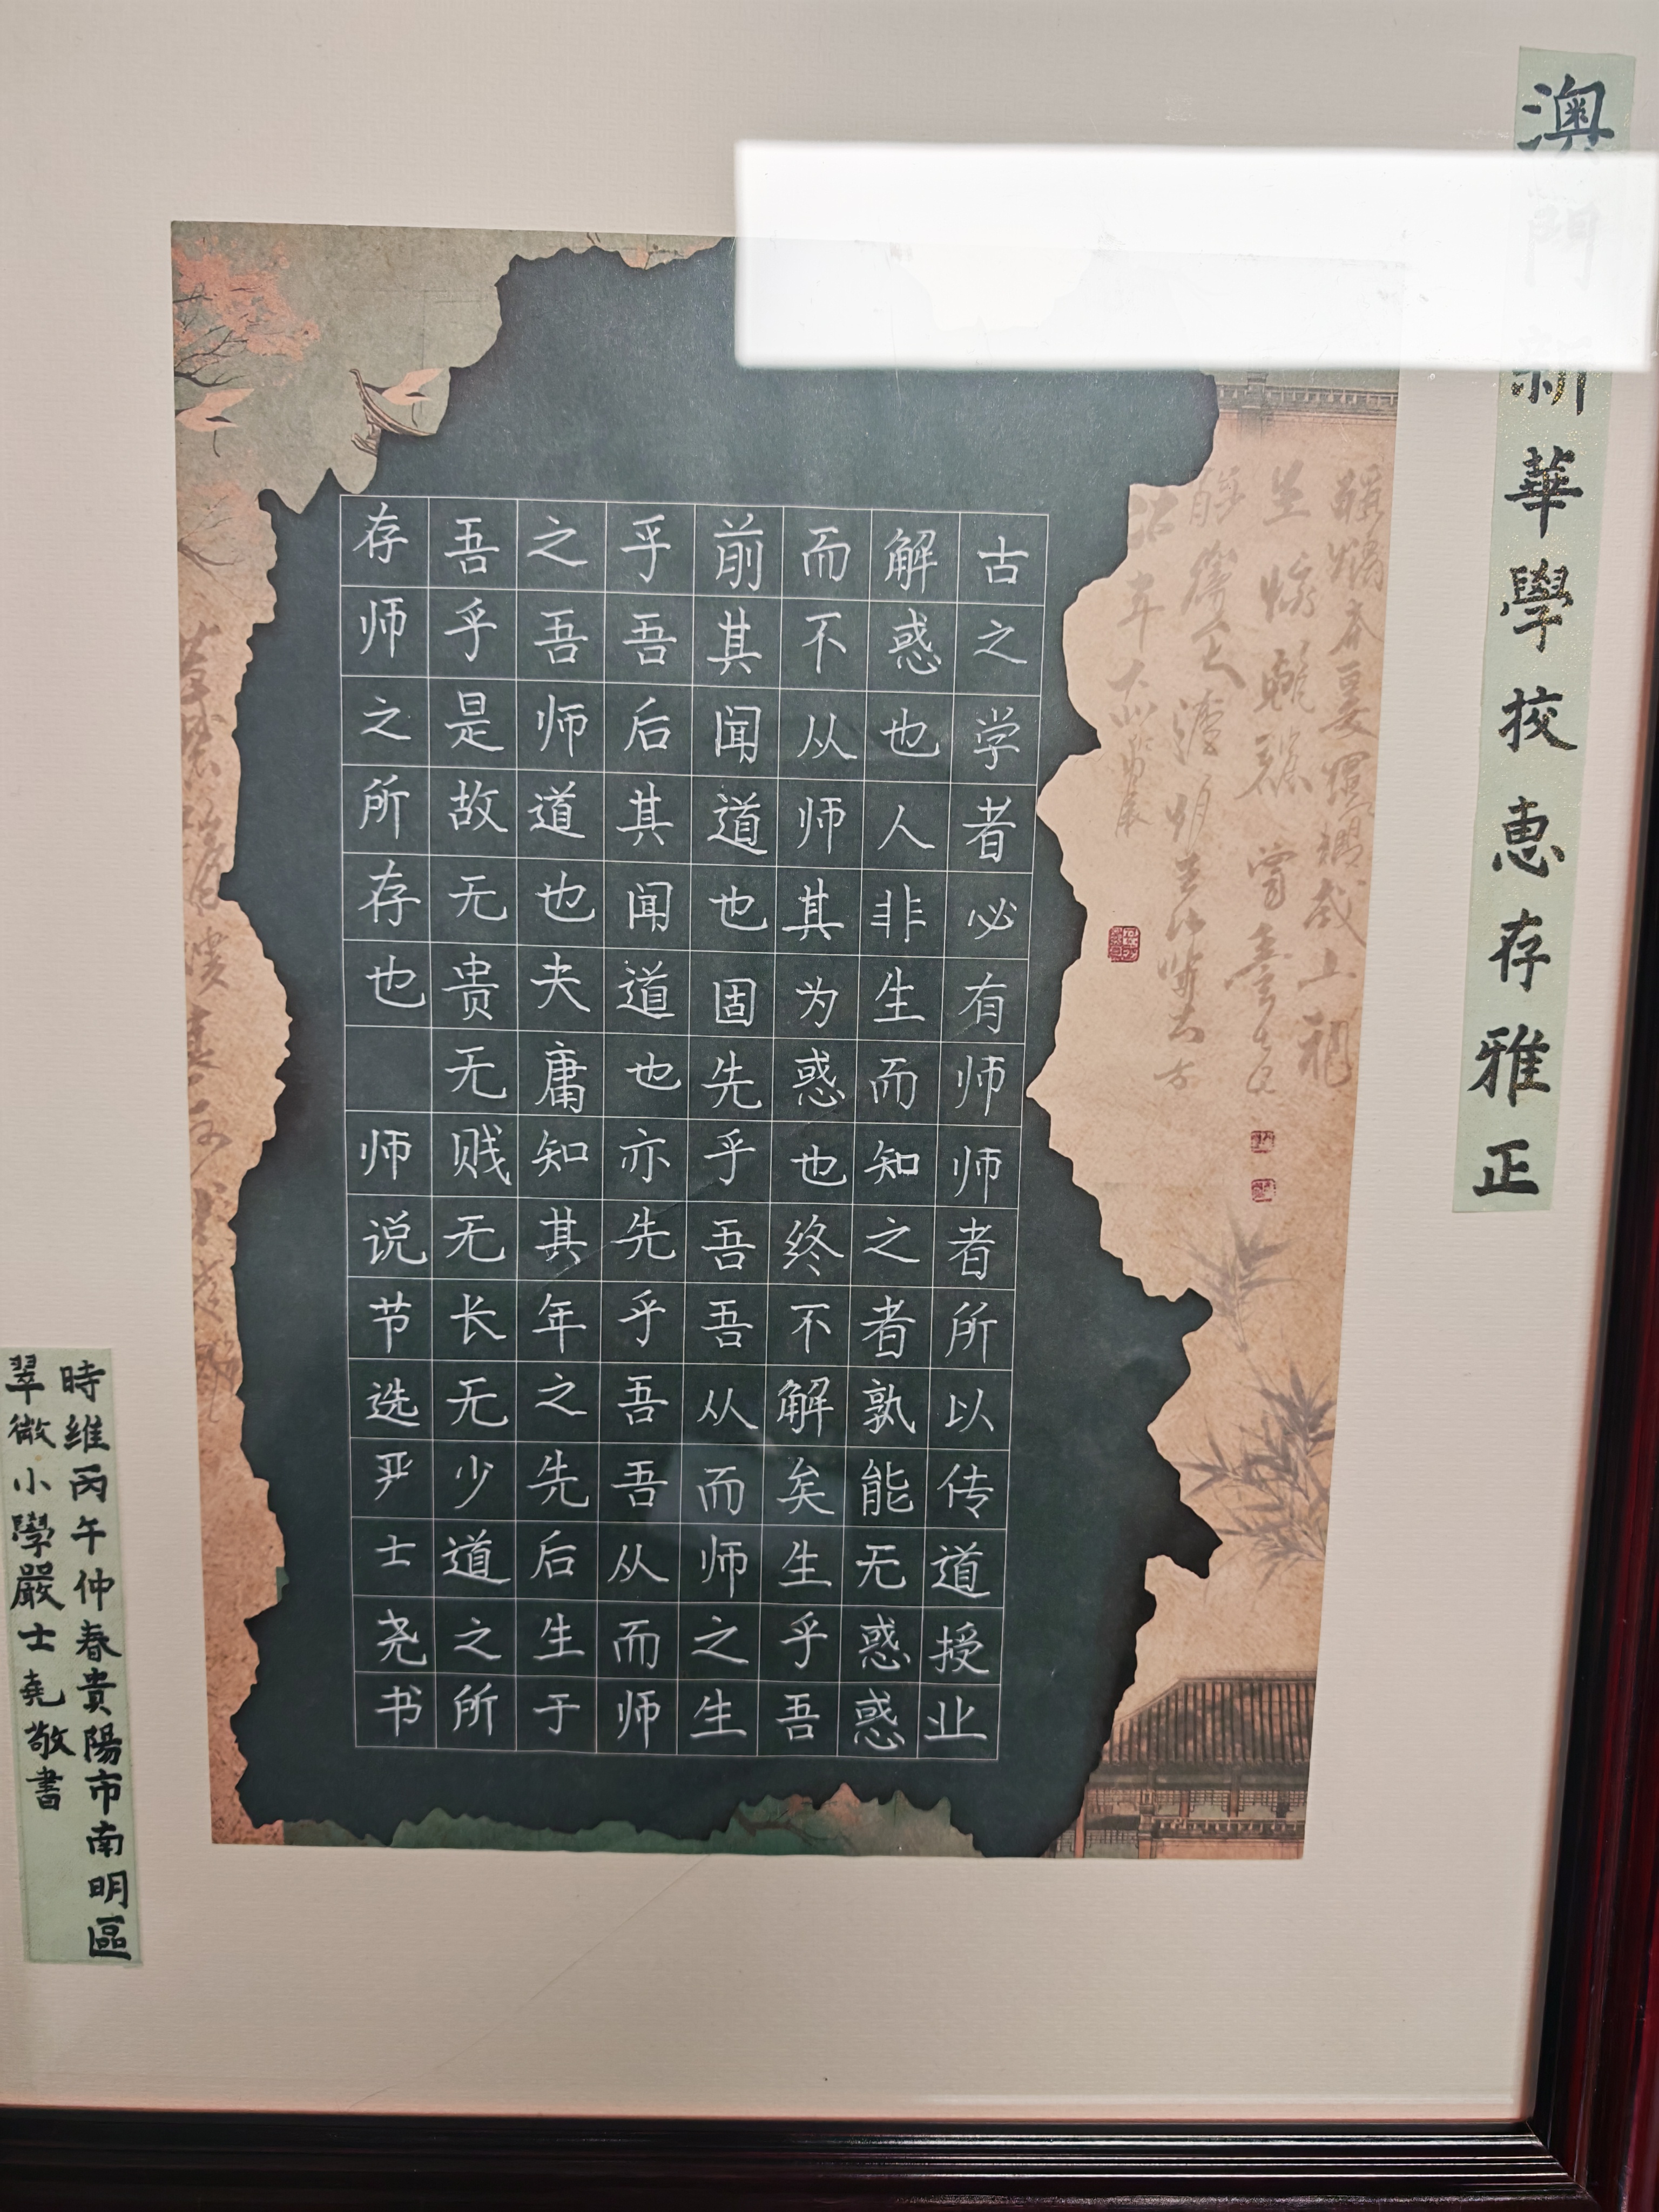 澳門新華學校惠存雅正
古之学者必有师师者所以传道授业
解惑也人非生而知之者孰能无惑惑
而不从师其为惑也终不解矣生乎吾
前其闻道也固先乎吾吾从而师之生
乎吾后其闻道也亦先乎吾吾从而师
之吾师道也夫庸知其年之先后生于
吾乎是故无贵无贱无长无少道之所
存师之所存也 师说节选严士尧书
時維丙午仲春貴陽市南明區
翠微小學嚴士堯敬書